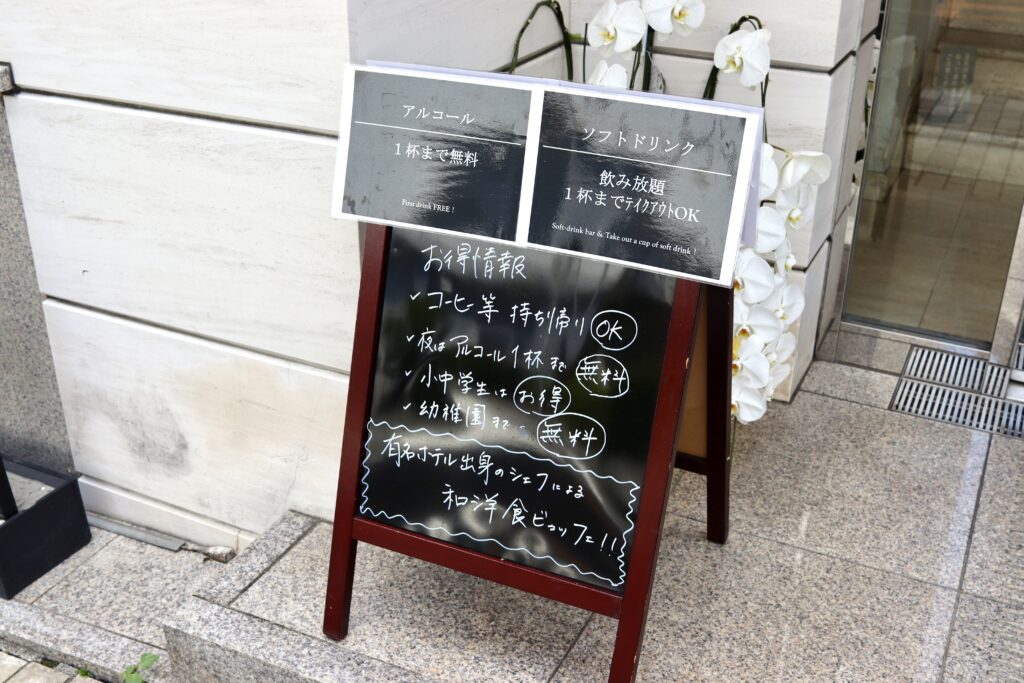 アルコール
1杯まで無料
First drink FREE !
ソフトドリンク
飲み放題
1杯までテイクアウトOK
Soft-drink bar & Take out a cup of soft drink !
お得情報
✓ コーヒー等 持ち帰り OK
✓ 夜は アルコール 1杯まで 無料
✓ 小中学生は お得
✓ 幼稚園まで 無料
有名ホテル出身のシェフによる
和洋食ビュッフェ!!